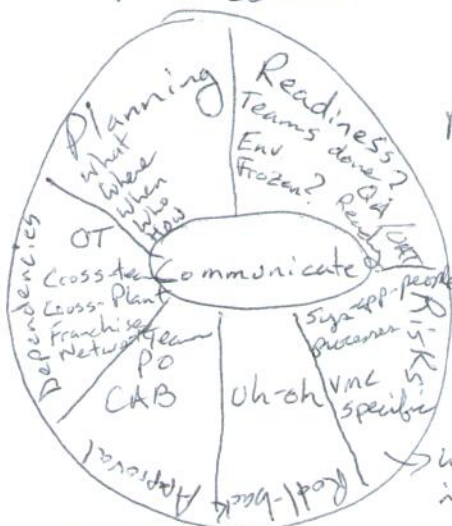 Planning
What
Where
When
Who
How
Readiness?
Teams done?
Env
Frozen?
QA/UAT
Ready
Communicate
Risks
Sys-app-people
processes
VMC
specific
Roll-back
Uh-oh
Approval
Team
PO
CAB
Dependencies
OT
Cross-team
Cross-Plant
Franchise
Network